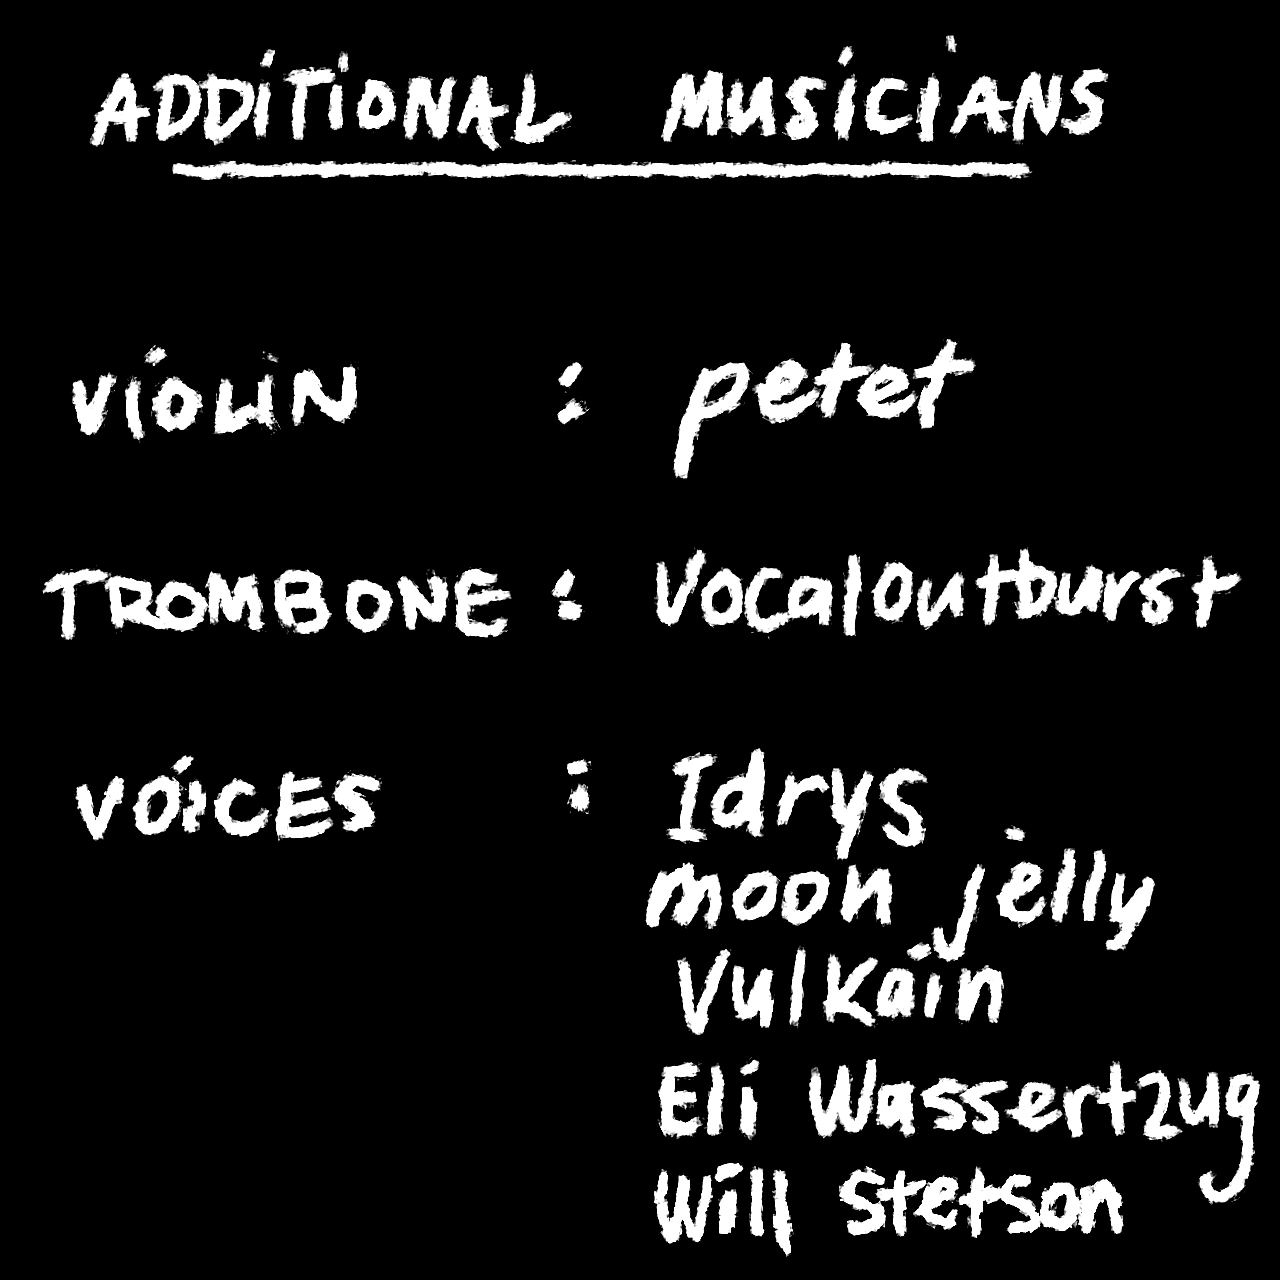 ADDiTiONAL MUSiCiANS
ViOLiN : petet
TROMBONE : Vocaloutburst
VOiCES : Idrys
moon jelly
Vulkain
Eli Wassertzug
Will Stetson